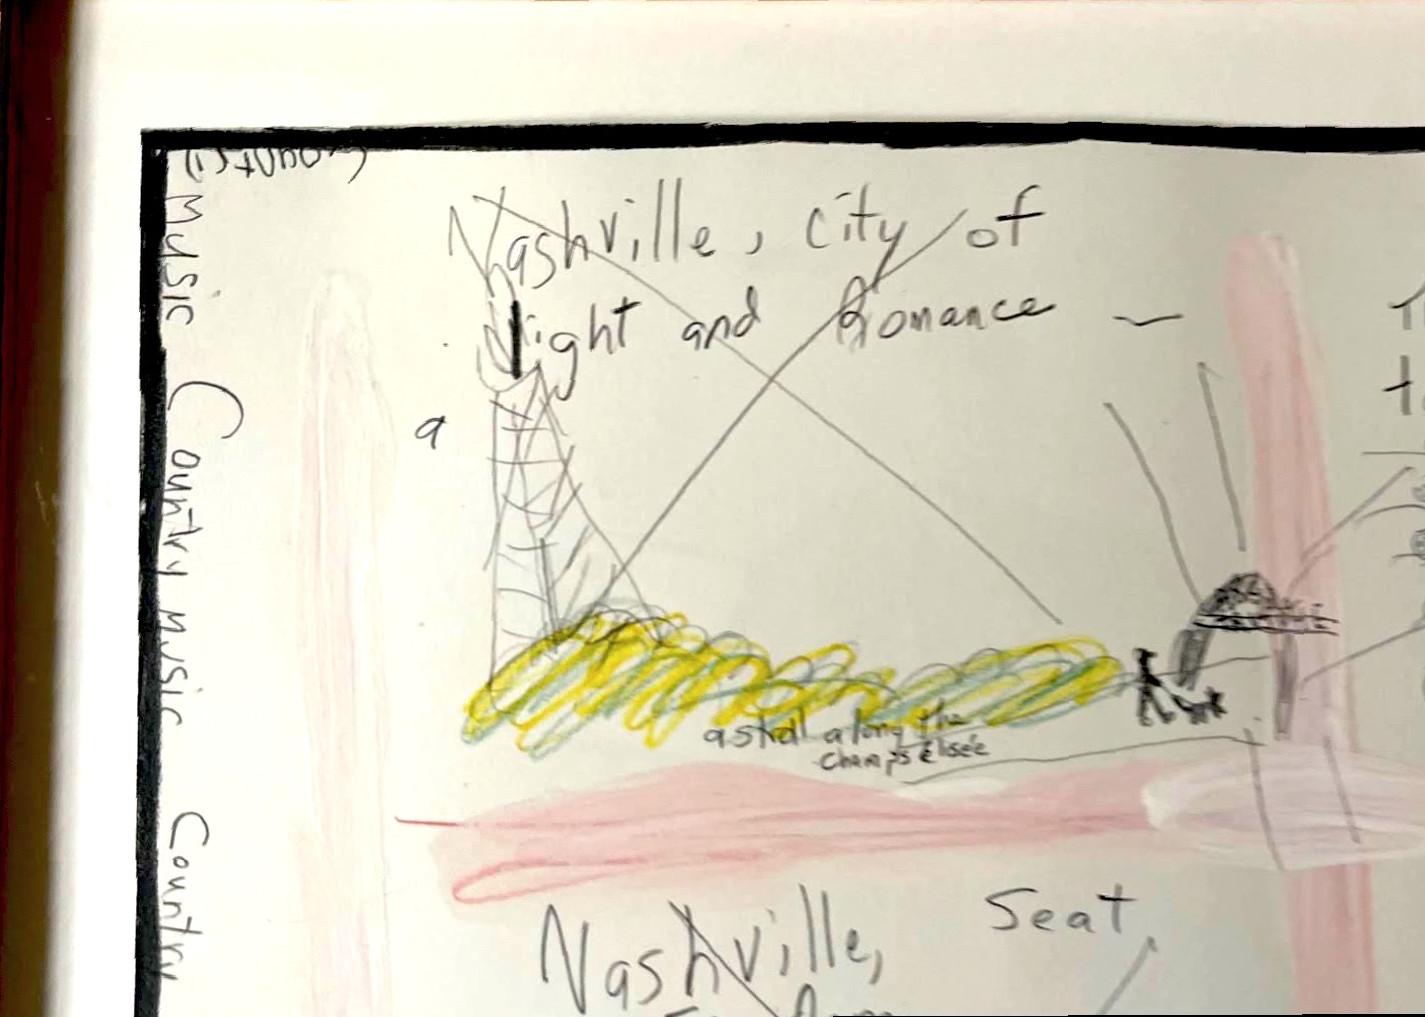 Country
Music Country Music Country
Nashville, City of
Light and Romance —
a
a stroll along the
Champs élisée
Seat
Nashville,